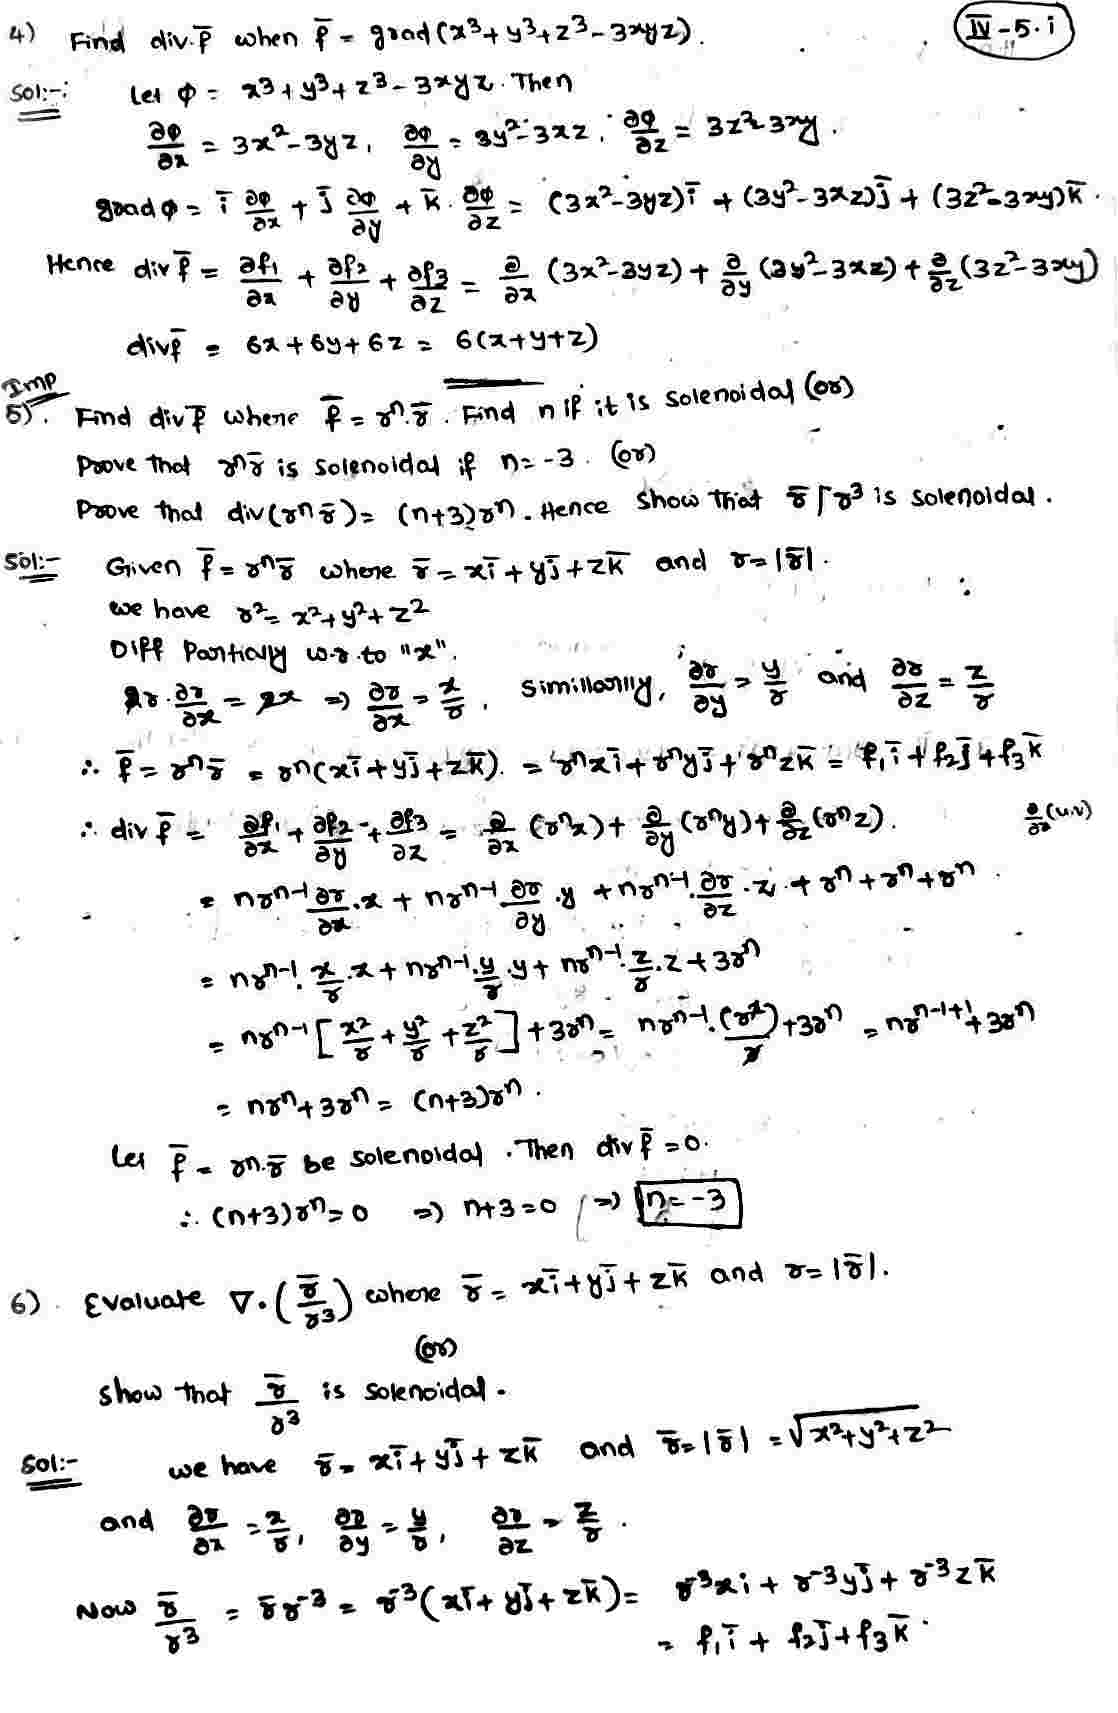 IV-5.i
4) Find div.f̄ when f̄ = grad(x³+y³+z³-3xyz).
Sol:-: Let φ = x³+y³+z³-3xyz. Then
∂φ/∂x = 3x²-3yz, ∂φ/∂y = 3y²-3xz, ∂φ/∂z = 3z²-3xy.
grad φ = ī ∂φ/∂x + j̄ ∂φ/∂y + k̄. ∂φ/∂z = (3x²-3yz)ī + (3y²-3xz)j̄ + (3z²-3xy)k̄.
Hence div f̄ = ∂f₁/∂x + ∂f₂/∂y + ∂f₃/∂z = ∂/∂x (3x²-3yz) + ∂/∂y (3y²-3xz) + ∂/∂z (3z²-3xy)
div f̄ = 6x+6y+6z = 6(x+y+z)
Imp
5). Find div f̄ where f̄ = rⁿ.r̄. Find n if it is solenoidal (or)
Prove that rⁿr̄ is solenoidal if n=-3. (or)
Prove that div(rⁿr̄) = (n+3)rⁿ. Hence show that r̄/r³ is solenoidal.
Sol:- Given f̄ = rⁿr̄ where r̄ = xī+yj̄+zk̄ and r=|r̄|.
we have r² = x²+y²+z²
Diff Partially w.r.to "x".
2r.∂r/∂x = 2x ⇒ ∂r/∂x = x/r, Simillarlly, ∂r/∂y = y/r and ∂r/∂z = z/r
∴ f̄ = rⁿr̄ = rⁿ(xī+yj̄+zk̄). = rⁿxī+rⁿyj̄+rⁿzk̄ = f₁ī+f₂j̄+f₃k̄
∴ div f̄ = ∂f₁/∂x + ∂f₂/∂y + ∂f₃/∂z = ∂/∂x (rⁿx) + ∂/∂y (rⁿy) + ∂/∂z (rⁿz). ∂/∂x (u.v)
= nrⁿ⁻¹ ∂r/∂x.x + nrⁿ⁻¹ ∂r/∂y.y + nrⁿ⁻¹.∂r/∂z.z + rⁿ+rⁿ+rⁿ.
= nrⁿ⁻¹.x/r.x + nrⁿ⁻¹.y/r.y + nrⁿ⁻¹.z/r.z + 3rⁿ
= nrⁿ⁻¹[x²/r + y²/r + z²/r] + 3rⁿ = nrⁿ⁻¹.(r²)/r + 3rⁿ = nrⁿ⁻¹⁺¹ + 3rⁿ
= nrⁿ+3rⁿ = (n+3)rⁿ.
Let f̄ = rⁿ.r̄ be solenoidal. Then div f̄ = 0.
∴ (n+3)rⁿ=0 ⇒ n+3=0 ⇒ n=-3
6). Evaluate ∇.(r̄/r³) where r̄ = xī+yj̄+zk̄ and r=|r̄|.
(or)
Show that r̄/r³ is solenoidal.
Sol:- we have r̄ = xī+yj̄+zk̄ and r̄=|r̄| = √x²+y²+z²
and ∂r/∂x = x/r, ∂r/∂y = y/r, ∂r/∂z = z/r.
Now r̄/r³ = r̄r⁻³ = r⁻³(xī+yj̄+zk̄) = r⁻³xi + r⁻³yj̄ + r⁻³zk̄
= f₁ī + f₂j̄ + f₃k̄.